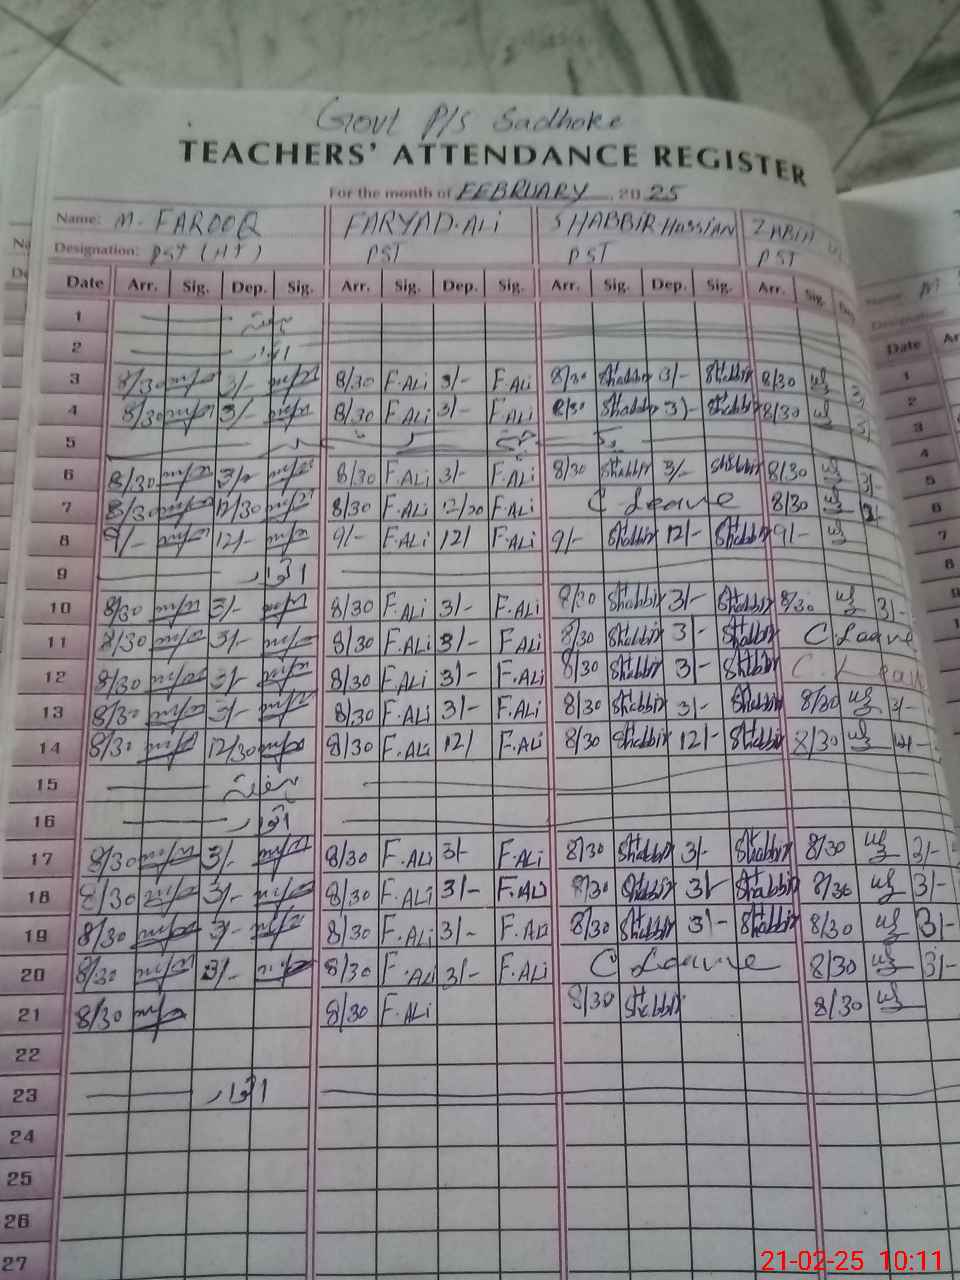 Govt P/S Sadhoke
TEACHERS' ATTENDANCE REGISTER
For the month of FEBRUARY, 2025
Name: M. FAROOQ FARYAD.ALi SHABBIR HUSSIAN
Designation: PST (HT) PST PST PST
Date Arr. Sig. Dep. Sig. Arr. Sig. Dep. Sig. Arr. Sig. Dep. Sig. Arr. Sig.
1 ہفتہ
2 اتوار
3 8/30 3/- 8/30 F.ALi 3/- F.ALi 8/30 Shabbir 3/- Shabbir 8/30
4 8/30 3/- 8/30 F.ALi 3/- F.ALi 8/30 Shabbir 3/- Shabbir 8/30
5
6 8/30 3/- 8/30 F.ALi 3/- F.ALi 8/30 Shabbir 3/- Shabbir 8/30 3/-
7 8/30 12/30 8/30 F.ALi 12/30 F.ALi C Leave 8/30
8 9/- 12/- 9/- F.ALi 12/ F.ALi 9/- Shabbir 12/- Shabbir 9/-
9 اتوار
10 8/30 3/- 8/30 F.ALi 3/- F.ALi 8/30 Shabbir 3/- Shabbir 8/30 3/-
11 8/30 3/- 8/30 F.ALi 3/- F.ALi 8/30 Shabbir 3/- Shabbir C Leave
12 8/30 3/- 8/30 F.ALi 3/- F.ALi 8/30 Shabbir 3/- Shabbir C. Leave
13 8/30 3/- 8/30 F.ALi 3/- F.ALi 8/30 Shabbir 3/- Shabbir 8/30 3/-
14 8/30 12/30 8/30 F.ALi 12/ F.ALi 8/30 Shabbir 12/- Shabbir 8/30
15 ہفتہ
16 اتوار
17 8/30 3/- 8/30 F.ALi 3/- F.ALi 8/30 Shabbir 3/- Shabbir 8/30 3/-
18 8/30 3/- 8/30 F.ALi 3/- F.ALi 8/30 Shabbir 3/- Shabbir 8/30 3/-
19 8/30 3/- 8/30 F.ALi 3/- F.ALi 8/30 Shabbir 3/- Shabbir 8/30 3/-
20 8/30 3/- 8/30 F.ALi 3/- F.ALi C Leave 8/30 3/-
21 8/30 8/30 F.ALi 8/30 Shabbir 8/30
22
23 اتوار
24
25
26
27
Date
1
2
3
4
5
6
7
8
21-02-25 10:11